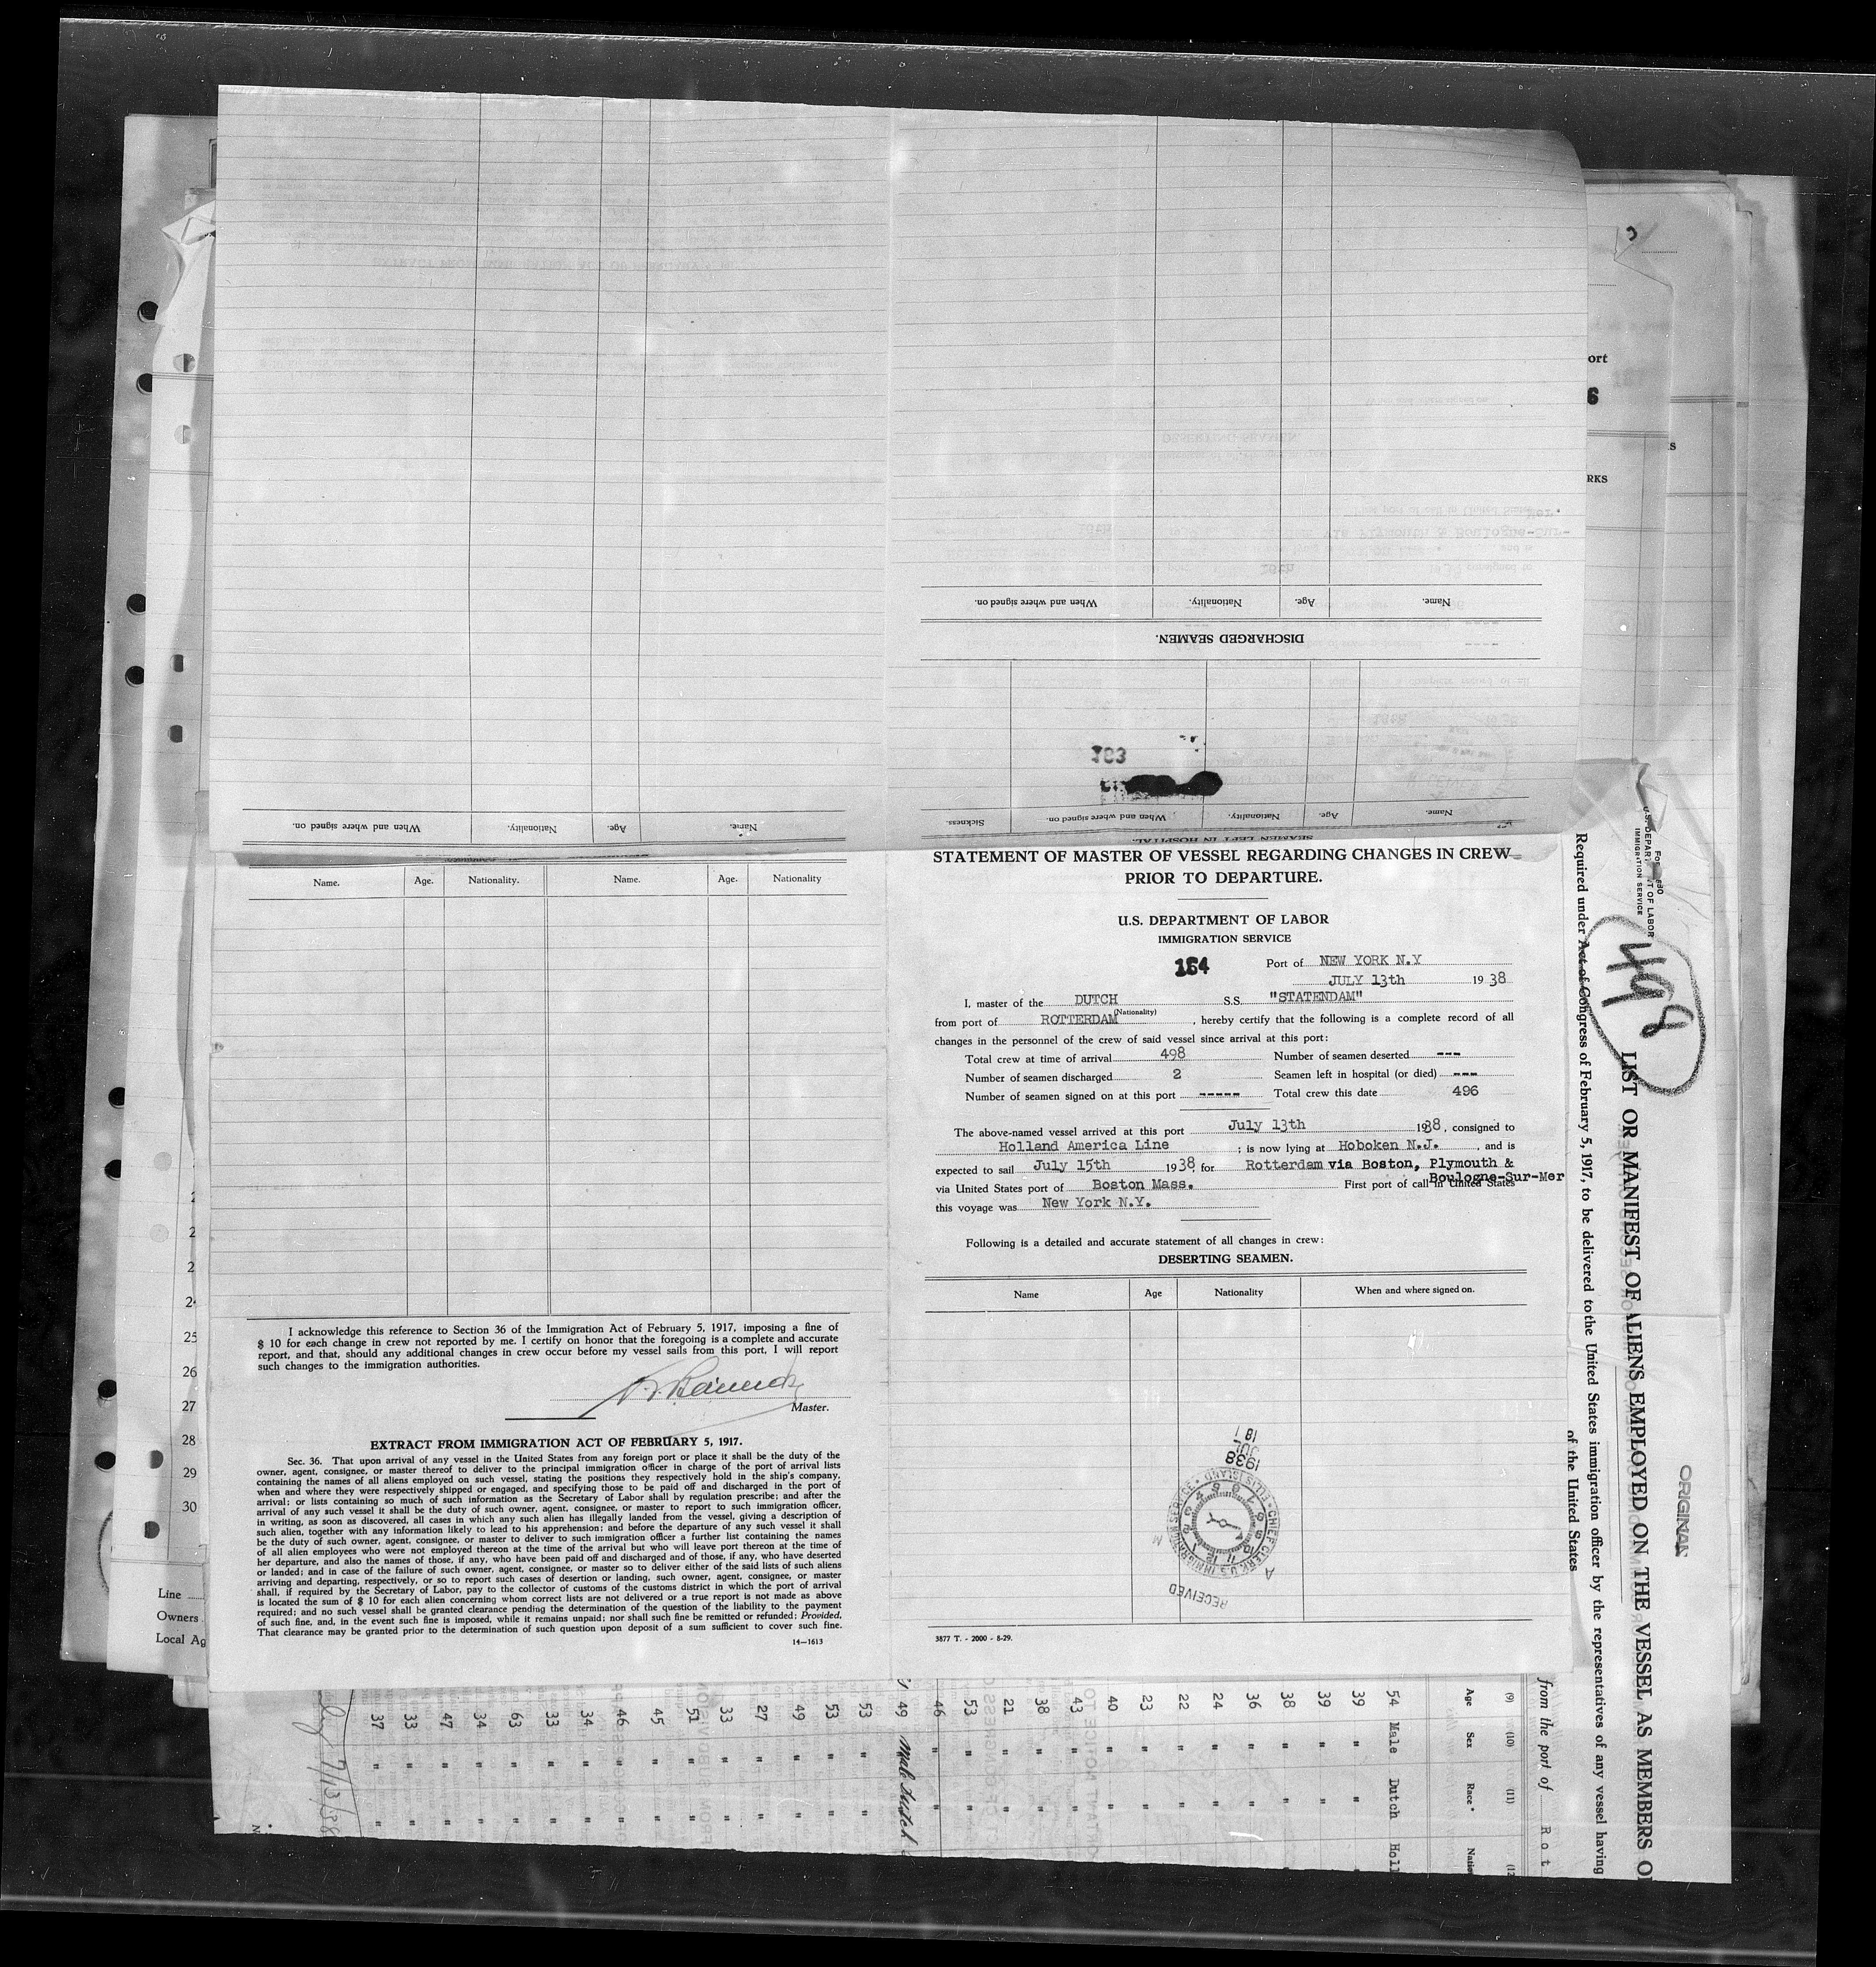 When and where signed on.
Nationality.
Age.
Name.
Name.
Age.
Nationality.
When and where signed on.
DISCHARGED SEAMEN.
183
Name.
Age.
Nationality.
When and where signed on.
Sickness.
SEAMEN LEFT IN HOSPITAL.
Name.
Age.
Nationality.
Name.
Age.
Nationality
I acknowledge this reference to Section 36 of the Immigration Act of February 5, 1917, imposing a fine of
$ 10 for each change in crew not reported by me. I certify on honor that the foregoing is a complete and accurate
report, and that, should any additional changes in crew occur before my vessel sails from this port, I will report
such changes to the immigration authorities.
Master.
EXTRACT FROM IMMIGRATION ACT OF FEBRUARY 5, 1917.
Sec. 36. That upon arrival of any vessel in the United States from any foreign port or place it shall be the duty of the
owner, agent, consignee, or master thereof to deliver to the principal immigration officer in charge of the port of arrival lists
containing the names of all aliens employed on such vessel, stating the positions they respectively hold in the ship's company,
when and where they were respectively shipped or engaged, and specifying those to be paid off and discharged in the port of
arrival; or lists containing so much of such information as the Secretary of Labor shall by regulation prescribe; and after the
arrival of any such vessel it shall be the duty of such owner, agent, consignee, or master to report to such immigration officer,
in writing, as soon as discovered, all cases in which any such alien has illegally landed from the vessel, giving a description of
such alien, together with any information likely to lead to his apprehension; and before the departure of any such vessel it shall
be the duty of such owner, agent, consignee, or master to deliver to such immigration officer a further list containing the names
of all alien employees who were not employed thereon at the time of the arrival but who will leave port thereon at the time of
her departure, and also the names of those, if any, who have been paid off and discharged and of those, if any, who have deserted
or landed; and in case of the failure of such owner, agent, consignee, or master so to deliver either of the said lists of such aliens
arriving and departing, respectively, or so to report such cases of desertion or landing, such owner, agent, consignee, or master
shall, if required by the Secretary of Labor, pay to the collector of customs of the customs district in which the port of arrival
is located the sum of $ 10 for each alien concerning whom correct lists are not delivered or a true report is not made as above
required; and no such vessel shall be granted clearance pending the determination of the question of the liability to the payment
of such fine, and, in the event such fine is imposed, while it remains unpaid; nor shall such fine be remitted or refunded; Provided,
That clearance may be granted prior to the determination of such question upon deposit of a sum sufficient to cover such fine.
14—1613
STATEMENT OF MASTER OF VESSEL REGARDING CHANGES IN CREW
PRIOR TO DEPARTURE.
U.S. DEPARTMENT OF LABOR
IMMIGRATION SERVICE
184
Port of NEW YORK N.Y
JULY 13th 1938
I, master of the DUTCH S.S. "STATENDAM"
(Nationality)
from port of ROTTERDAM, hereby certify that the following is a complete record of all
changes in the personnel of the crew of said vessel since arrival at this port:
Total crew at time of arrival 498 Number of seamen deserted ---
Number of seamen discharged 2 Seamen left in hospital (or died) ---
Number of seamen signed on at this port ----- Total crew this date 496
The above-named vessel arrived at this port July 13th 1938, consigned to
Holland America Line; is now lying at Hoboken N.J., and is
expected to sail July 15th 1938 for Rotterdam via Boston, Plymouth &
Boulogne-Sur-Mer
via United States port of Boston Mass. First port of call in United States
this voyage was New York N.Y.
Following is a detailed and accurate statement of all changes in crew:
DESERTING SEAMEN.
Name
Age
Nationality
When and where signed on.
RECEIVED
CHIEF CLERK U.S. IMMIGRATION SERVICE ELLIS ISLAND
1938
JUL
18
3877 T. - 2000 - 8-29.
ort
6
S
RKS
25
26
27
28
29
30
Line
Owners
Local Ag
U.S. DEPAR T OF LABOR
IMMIGRATION SERVICE
498
ORIGINAL
LIST OR MANIFEST OF ALIENS EMPLOYED ON THE VESSEL AS MEMBERS O
Required under Act of Congress of February 5, 1917, to be delivered to the United States immigration officer by the representatives of any vessel having
of the United States
from the port of Rot
(9) (10) (11) (12
Age Sex Race* Natio
54 Male Dutch Holl
39 " "
39 " "
38 " "
36 " "
24 " "
22 " "
23 " "
40 " "
43 " "
38 " "
21 " "
53 " "
46 " "
49 Male Dutch
53 " "
53 " "
49 " "
27 " "
33 " "
51 " "
45 " "
46 " "
34 " "
33 " "
63 " "
34 " "
47 " "
33 " "
37 " "
7/13/38